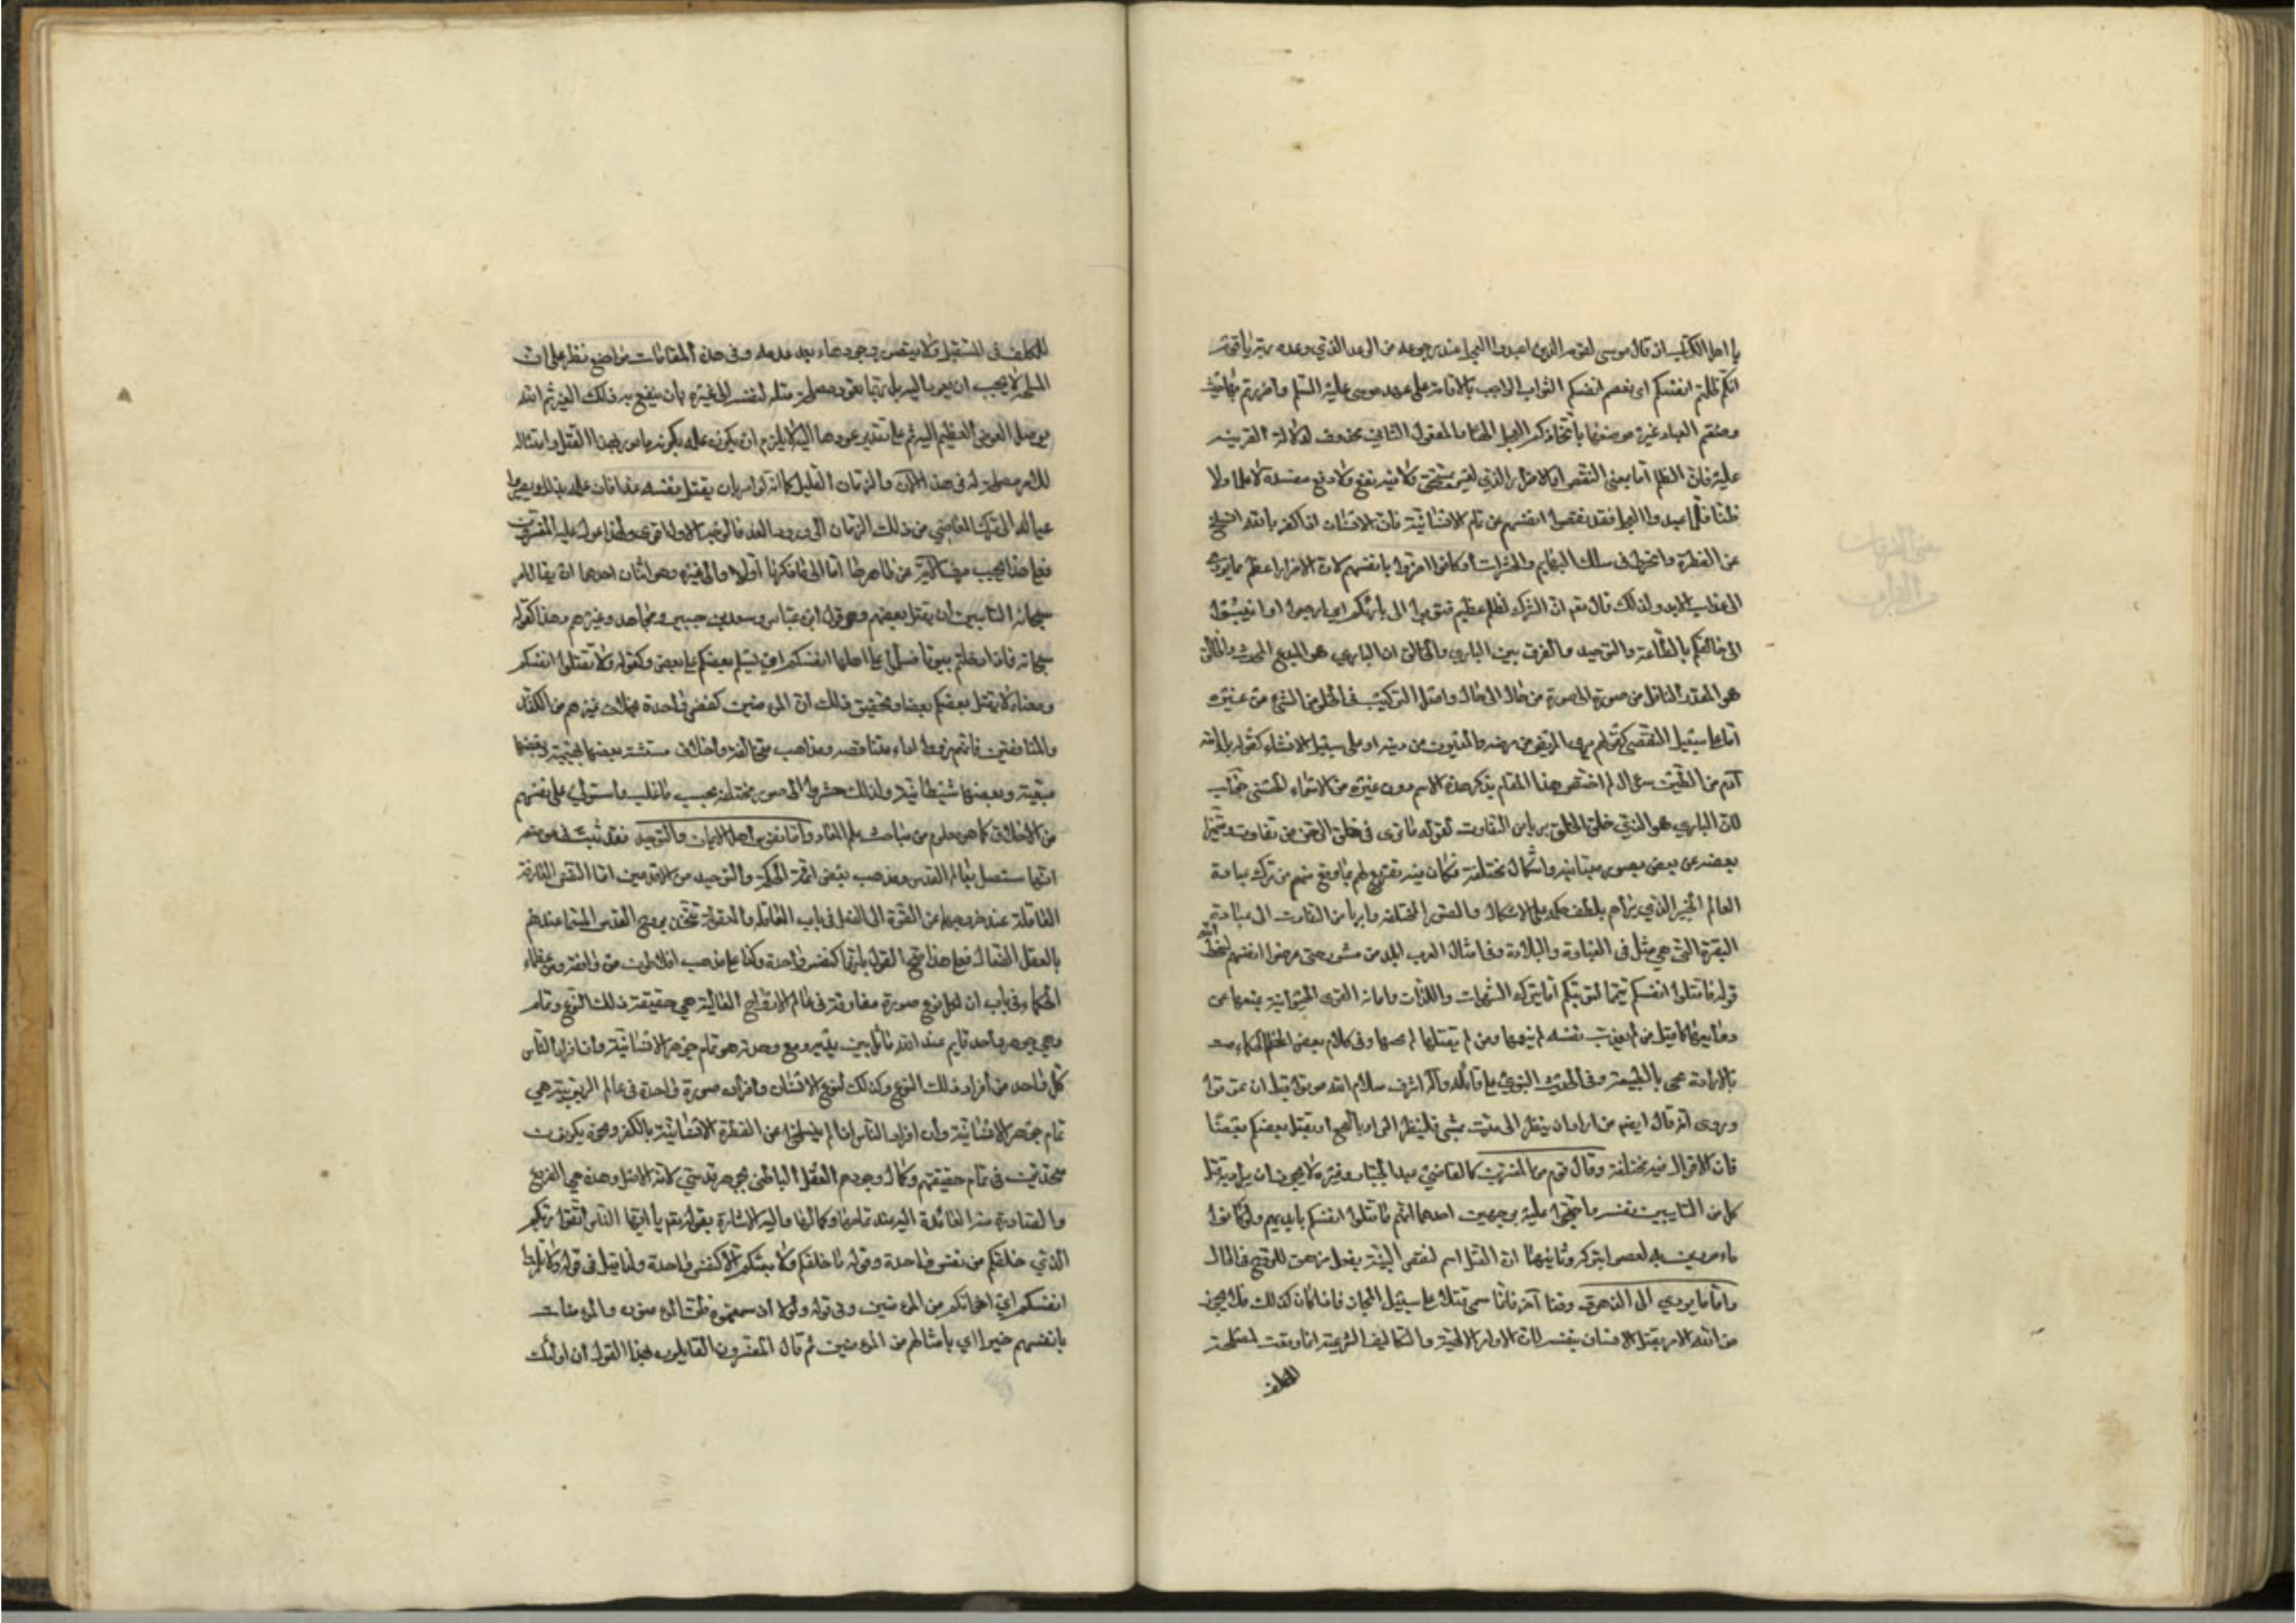 يا اهل الكتاب اذ قال موسى لقومه الذين اعبدوا العجل عند رجوعه من الوعد الذي وعده ربه يا قوم
انكم ظلمتم انفسكم اى نقصتم انفسكم الثواب الواجب بالاقامة على عهد موسى عليه السلم
وضعتم العبادة غير موضعها باتخاذكم العجل الها والمفعول الثاني محذوف لدلالة القرينة
عليه فان الظلم اما بمعنى النقص او الاضرار الذي لغير مستحق ولا فيه نفع ولا دفع مفسدة لا علما ولا
ظنا فلما عبدوا العجل فقد نقصوا انفسهم عن تمام الانسانية فان الانسان اذا كفر بالله انسلخ
عن الفطرة وانخرط في سلك البهايم والحشرات او كانوا اضروا بانفسهم لان الاضرار اعظم ما يؤدى
الى عذاب الابد ولذلك قال تقم ان الشرك لظلم عظيم فتوبوا الى بارئكم اى ارجعوا او انيبوا
الى خالقكم بالطاعة والتوحيد والفرق بين الباري والخالق ان الباري هو المبدع المحدث والخالق
هو المقدر الناقل من صورة الى صورة من حال الى حال واصل التركيب في الخلوص الشئ من غيره
اما على سبيل التفصى كقولهم برئ المريض من مرضه والمديون من دينه او على سبيل الانشاء كقوله برا الله
آدم من الطين سؤال لم اختص هذا المقام بذكر هذا الاسم دون غيره من الاسماء الحسنى جواب
لان الباري هو الذي خلق الخلق بريا من التفاوت لقوله ما ترى في خلق الرحمن من تفاوت ومتميزا
بعضه عن بعض بصور متباينة واشكال مختلفة فكان فيه تقريع لهم بما وقع منهم من ترك عبادة
العالم الخبير الذي براهم بلطف حكمه على الاشكال والصور المختلفة وابريا من التفاوت الى عبادة
البقرة التي هي مثل في الغباوة والبلادة وفي امثال العرب ابلد من ثور حتى عرضوا انفسهم لسخط الله
قوله فاقتلوا انفسكم تتميما لتوبتكم اما بترك الشهوات واللذات واماتة القوى الحيوانية بمنعها عن
دعابيرها كما قيل من لم يعذب نفسه لم ينعمها ومن لم يقتلها لم يحيها وفي كلام بعض الحكماء مت
بالارادة تحى بالطبيعة وفي الحديث النبوي على قائله وآله اشرف سلام الله موتوا قبل ان تموتوا
وروى انه قال ايضم من اراد ان ينظر الى ميت يمشي فلينظر الى او بالبخع او بقتل بعضكم بعضا
فان الاقوال فيه مختلفة وقال قوم من المفسرين كالقاضي عبد الجبار وغيره لا يجوز ان يراد بقتل
كل من التايبين نفسه واحتجوا عليه بوجهين احدهما انهم ما قتلوا انفسكم بايديهم ولو كانوا
مامورين به لعصوا بتركه وثانيهما ان القتل اسم لنقص البنية بفعل زهق للروح في الحال
واما ما يؤدي الى الزهوق وقتا آخر فانما سمى قتلا على سبيل المجاز فاذا كان كذلك فلا يجوز
من الله الامر بقتل الانسان نفسه لان الاوامر الالهية والتكاليف الشرعية انما وقعت لمصلحة
للمكلف
للمكلف في المستقبل ولا يتصور وجودها بعد عدمه وفي هذه المقامات مواضع نظر على ان
المصلحة لا يجب ان يعود اليه بل ربما يعود مصلحة قتله لنفسه الى غيره بان ينفع به ذلك الغير ثم الله
يوصل العوض العظيم اليه ثم على تقدير عودها اليه لا يلزم ان يكون علمه بكونه مامورا بهذا القتل وامتثاله
للامر مصلحة له في هذا الآن والزمان القليل كما انه لو امر بان يقتل نفسه غدا فان علمه بذلك يصير داعيا
عماله الى ترك القبايح من ذلك الزمان الى ورود الغد فالوجه الاول اقوى ولهذا عول عليه المفسرون
فعلى هذا يجب صرف الآية عن ظاهرها اما الى ما ذكرنا اولا والى غيره وهو اثنان احدهما ان يقال امر
سبحانه التايبين ان يقتل بعضهم وهو قول ابن عباس وسعد بن جبير ومجاهد وغيرهم وهذا كقوله
سبحانه فاذا دخلتم بيوتا فسلموا على اهلها انفسكم اى ليسلم بعضكم على بعض وكقوله ولا تقتلوا انفسكم
ومعناه لا يقتل بعضكم بعضا وتحقيق ذلك ان المؤمنين كنفس واحدة بخلاف غيرهم من الكفار
والمنافقين فانهم ذووا اراء متناقضة ومذاهب متخالفة واخلاق متشتتة بعضها بهيمية وبعضها
سبعية وبعضها شيطانية ولذلك حشروا الى صور مختلفة بحسب ما غلب واستولى على نفوسهم
من الاخلاق كما هو معلوم من مباحث علم المعاد واما نفوس اهل الايمان والتوحيد فقد ثبت في موضعه
انها ستصل بعالم القدس ومذهب بعض ائمة الحكمة والتوحيد من الاقدمين ان النفس الفارقة
الفاضلة عند خروجها من القوة الى الفعل في باب العاقلة والمعقولة تتحد بروح القدس المسمى عندهم
بالعقل الفعال فعلى هذا صح القول بانها كنفس واحدة وكذا على مذهب افلاطون ومن وافقه من عظماء
الحكماء في باب ان لكل نوع صورة مفارقة في عالم الارواح العالية هي حقيقة ذلك النوع وتمامه
وهي جوهر واحد قايم عند الله ماثل بين يديه ومع وحدته هو تمام جوهر الانسانية وان افراد الناس
كل واحد من افراد ذلك النوع وكذلك لنوع الانسان وافراده صورة واحدة في عالم الربوبية هي
تمام جوهر الانسانية وان افراد الناس اذا لم ينسلخوا عن الفطرة الانسانية بالكفر ونحوه يكونون
متحدين في تمام حقيقتهم وكمال وجودهم العقل الباطني بجوهر قدسي لانه الاصل وهذه هي الفروع
والصادرة منه العائدة اليه عند تمامها وكمالها واليه الاشارة بقوله تقم يا ايها الناس اتقوا ربكم
الذي خلقكم من نفس واحدة وقوله ما خلقكم ولا بعثكم الا كنفس واحدة ولما قيل في قوله ولا تلمزوا
انفسكم اى اخوانكم من المؤمنين وفي قوله لولا اذ سمعتموه ظن المؤمنون والمؤمنات
بانفسهم خيرا اي بامثالهم من المؤمنين ثم قال المفسرون القايلون بهذا القول ان اولئك